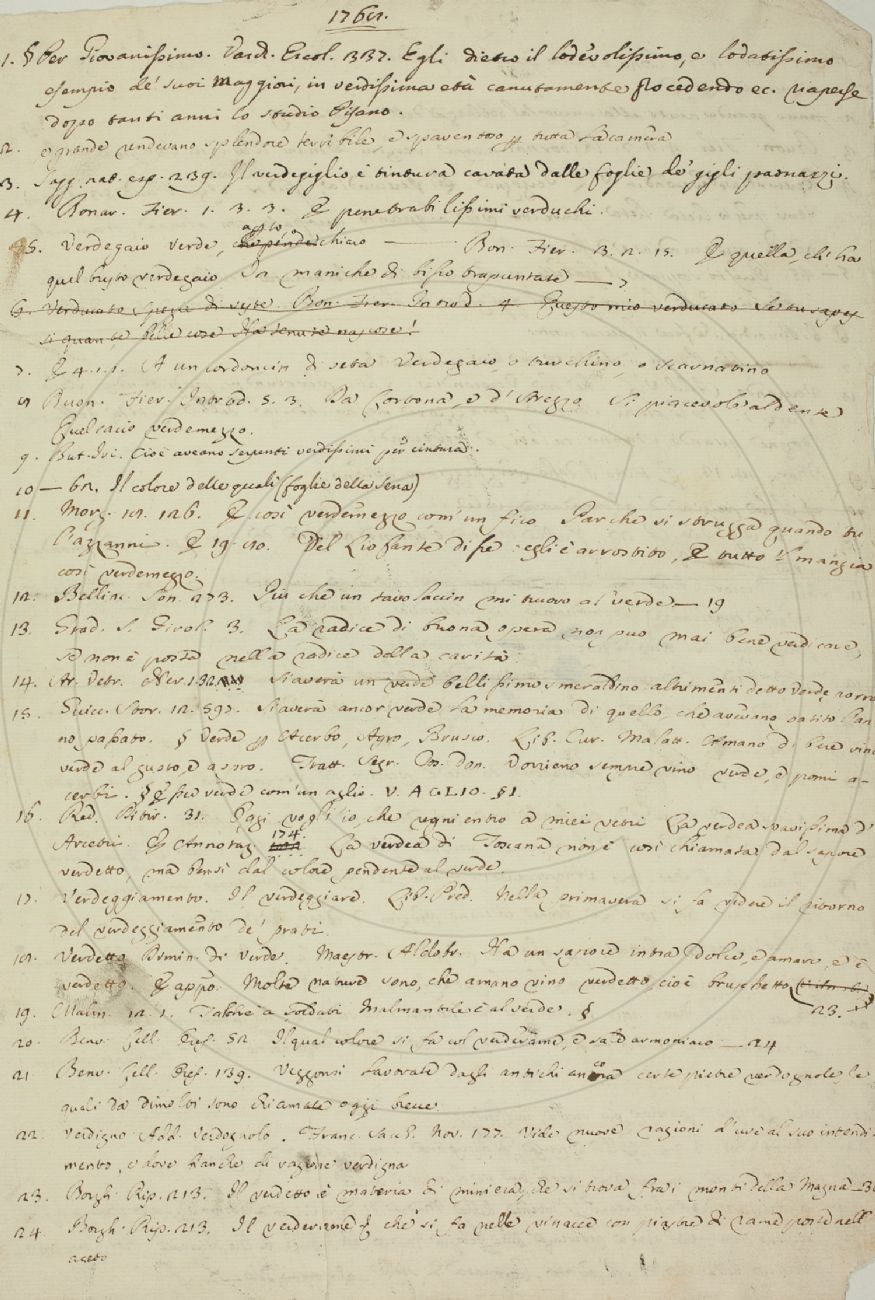 1. § Per Giovanissimo. Varch. Ercol. 337. Egli dietro il lodevolissimo, e lodatissimo
esempio de' suoi Maggiori, in verdissima età canutamente procedendo ec. riaperse
dopo tanti anni lo studio Pisano.
2. e grande rendevano splendore terribile, e spaventoso tutta la camera
3. Sagg. nat. esp. 239. Il verdegiglio è tintura cavata dalle foglie de' gigli paonazzi.
4. Bonar. Fier. 1. 3. 3. E penetrabilissimi verduchi.
5. Verdegaio verde, chiaro — Bon. Fier. 3. 2. 15. E quella, ch' ha
quel busto verdegaio In maniche di bisso trapuntate —
6. Verducato Spezie di veste. Bon. Fier. Introd. 4. Questo mio verducato Se tu sapessi
si quante belle cose Ha tenute nascose!
7. E 4. 1. 1. A un cordoncin di seta Verdegaio, o turchino, o scarnatino
Buon. Fier. Introd. 5. 3. Da Cortona, e d' Arezzo Si piacevol' al dente
Quel cacio verdemezzo.
9. But. Ivi. Cioè aveano serpenti verdissimi per cintura.
10 — 62. Il colore delle quali (foglie della Sena)
11. Morg. 12. 126. E così verdemezzo com' un fico Par che si strugga quando tu
l'azzanni. E 19. 90. Del Liofante di se egli è arrostito, E tutto il mangia
così verdemezzo.
12. Bellinc. Son. 273. Più che un tavolaccin mi truovo al verde — 19
13. Grad. S. Girol. 3. La radice di buona opera non può mai bene verdicare,
se non è posta nella radice della carità.
14. Art. Vetr. Ner. 132. Si averà un verde bellissimo smeraldino altrimenti detto verde porro
15. Guicc. Stor. 12. 597. Si averà ancor verde la memoria di quello, che avevano patito l'an-
no passato. § Verde Acerbo, Agro, Brusco. Lib. Cur. Malatt. Amano di bere vino
verde al gusto, e aspro. Tratt. Segr. Cos. Don. Vorrieno sempre vino verde, e pomi a-
cerbi. § verde com' un aglio. V. AGLIO. §1.
16. Red. Ditir. 31. Oggi vogl' io, che regni entro a miei vetri La verdea soavissima d'
Arcetri. E Annotaz. 174. La verdea di Toscana non è così chiamata dal sapore
verdetto, ma bensì dal colore pendente al verde.
17. Verdeggiamento. Il verdeggiare. Lib. Pred. Nella primavera si fa vedere il ritorno
del verdeggiamento de' prati.
Verdetto Dimin. di verde. Maestr. Aldobr. Ha un sapore intra dolce, e amaro, e è
verdetto. E appo. Molte nature sono, che amano vino verdetto, cioè bruschetto
23.
19. Malm. 12. 1. Talchè a Soldati Malmantile è al verde. §
20. Benv. Cell. Oref. 52. Il qual colore si fa col verderame, e sale armoniaco — 24
21. Benv. Cell. Oref. 139. Veggonsi lavorate dagli antichi ancora certe pietre verdognole le
quali da dimolti sono chiamate oggi breve
22. Verdigno Add. Verdognolo. Franc. Sacch. Nov. 177. Vide nuove ragioni d'uve al suo intendi-
mento, e dove bianche di ragione verdigna
23. Borgh. Rip. 213. Il verdetto è materia di miniera, che si trova fra i monti della Magna
24. Borgh. Rip. 213. Il verderame che si fa nelle vinacce con piastre di rame poste nell'
aceto